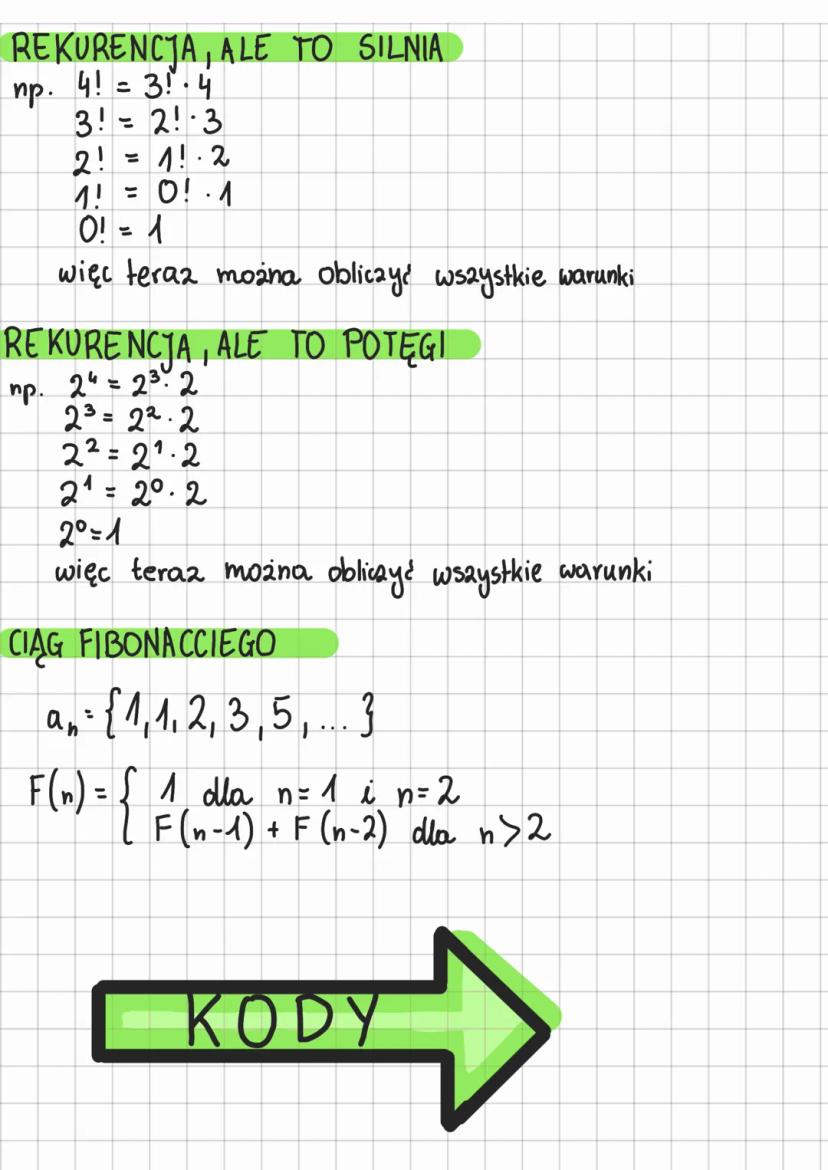 REKURENCJA, ALE TO SILNIA
np. 4! = 3! · 4
3! = 2! · 3
2! = 1! · 2
1! = 0! · 1
0! = 1
więc teraz można obliczyć wszystkie warunki
REKURENCJA, ALE TO POTĘGI
np. 2⁴ = 2³ · 2
2³ = 2² · 2
2² = 2¹ · 2
2¹ = 2⁰ · 2
2⁰ = 1
więc teraz można obliczyć wszystkie warunki
CIĄG FIBONACCIEGO
aₙ = {1, 1, 2, 3, 5, ...}
F(n) = { 1 dla n = 1 i n = 2
F(n-1) + F(n-2) dla n > 2
KODY